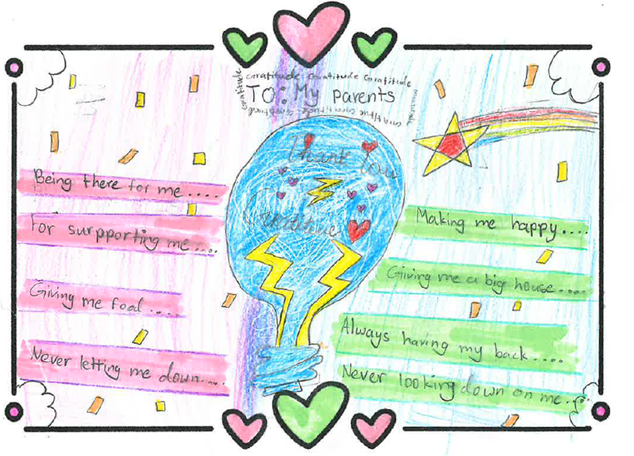 Gratitude Gratitude Gratitude
TO: My parents
Thank You
Gratitude
Being there for me ....
For surpporting me ....
Giving me food ....
Never letting me down ....
Making me happy ....
Giving me a big house ....
Always having my back ....
Never looking down on me ....